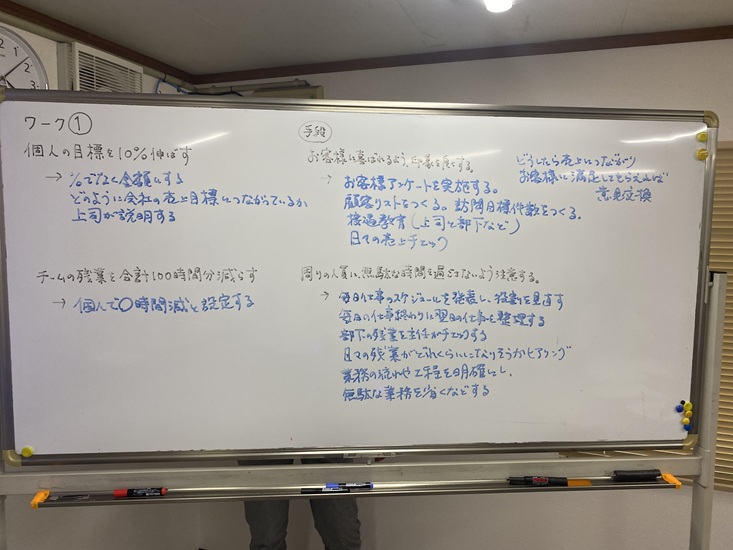 ワーク①
個人の目標を10%伸ばす
→ %でなく金額にする
どのように会社の売上目標につながっているか
上司が説明する
手段
お客様に喜ばれるよう、印象を良くする。
→ お客様アンケートを実施する。
顧客リストをつくる。訪問目標件数をつくる。
接遇教育(上司と部下など)
日々の売上チェック
どうしたら売上につながり
お客様に満足してもらえるか
意見交換
チームの残業を合計100時間分減らす
→ 個人で〇時間減と設定する
周りの人員に、無駄な時間を過さないよう注意する。
→ 毎日仕事のスケジュールを発表し、役割を見直す
毎日の仕事終わりに翌日の仕事を整理する
部下の残業を主任がチェックする
日々の残業がどれくらいになりそうかヒアリング
業務の流れや工程を明確にし、
無駄な業務を省くなどする